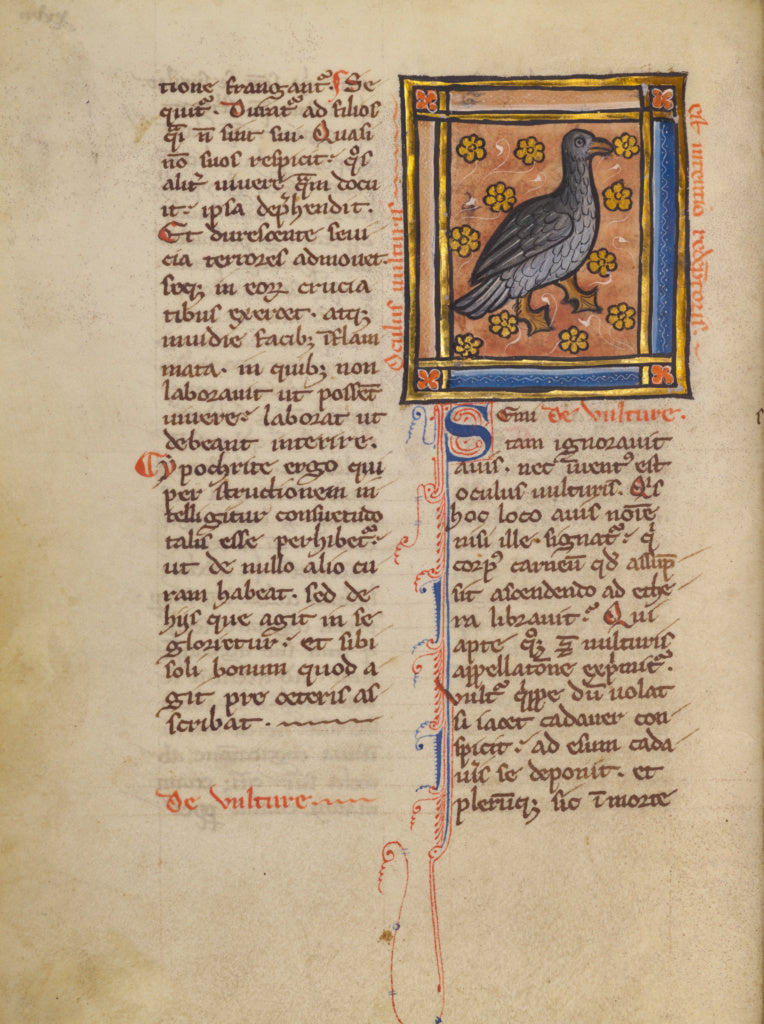 tione frangant̃. Se
quit̃. Durat̃ ad filios
q̃i ñ sint sui. Quasi
nõ suos respicit. q̃s
alit̃ uiuere q̃m docu
it. ipsa dep̃hendit.
Et durescente seui
cia terrores admouet
seqꝫ in eoꝝ crucia
tibus exercet. atqꝫ
inuidie facibꝫ ĩflam
mata. in quibꝫ non
laborauit ut possẽt
uiuere. laborat ut
debeant interire.
Ypochrite ergo qui
per structionem in
telligitur consuetudo
talis esse perhibet̃.
ut de nullo alio cu
ram habeat. sed de
hijs que agit in se
glorietur. et sibi
soli bonum quod a
git pre ceteris as
scribat.
De vulture.
Oculus uulturis
est intentio redẽptoris
Semi De vulture.
tam ignorauit
auis. nec ĩuent᷒ est
oculus uulturis. Q̃s
hoc loco auis noĩe
nisi ille signat̃. q̃
corp᷒ carneũ qd̃ assũp
sit ascendendo ad ethe
ra librauit. Qui
apte qꝫ uulturis
appellatõne exp̃mit̃.
vult̃ q̃ppe dũ uolat
si iacet cadauer con
spicit. ad esum cada
ũis se deponit. et
plerũqꝫ sic ĩ morte